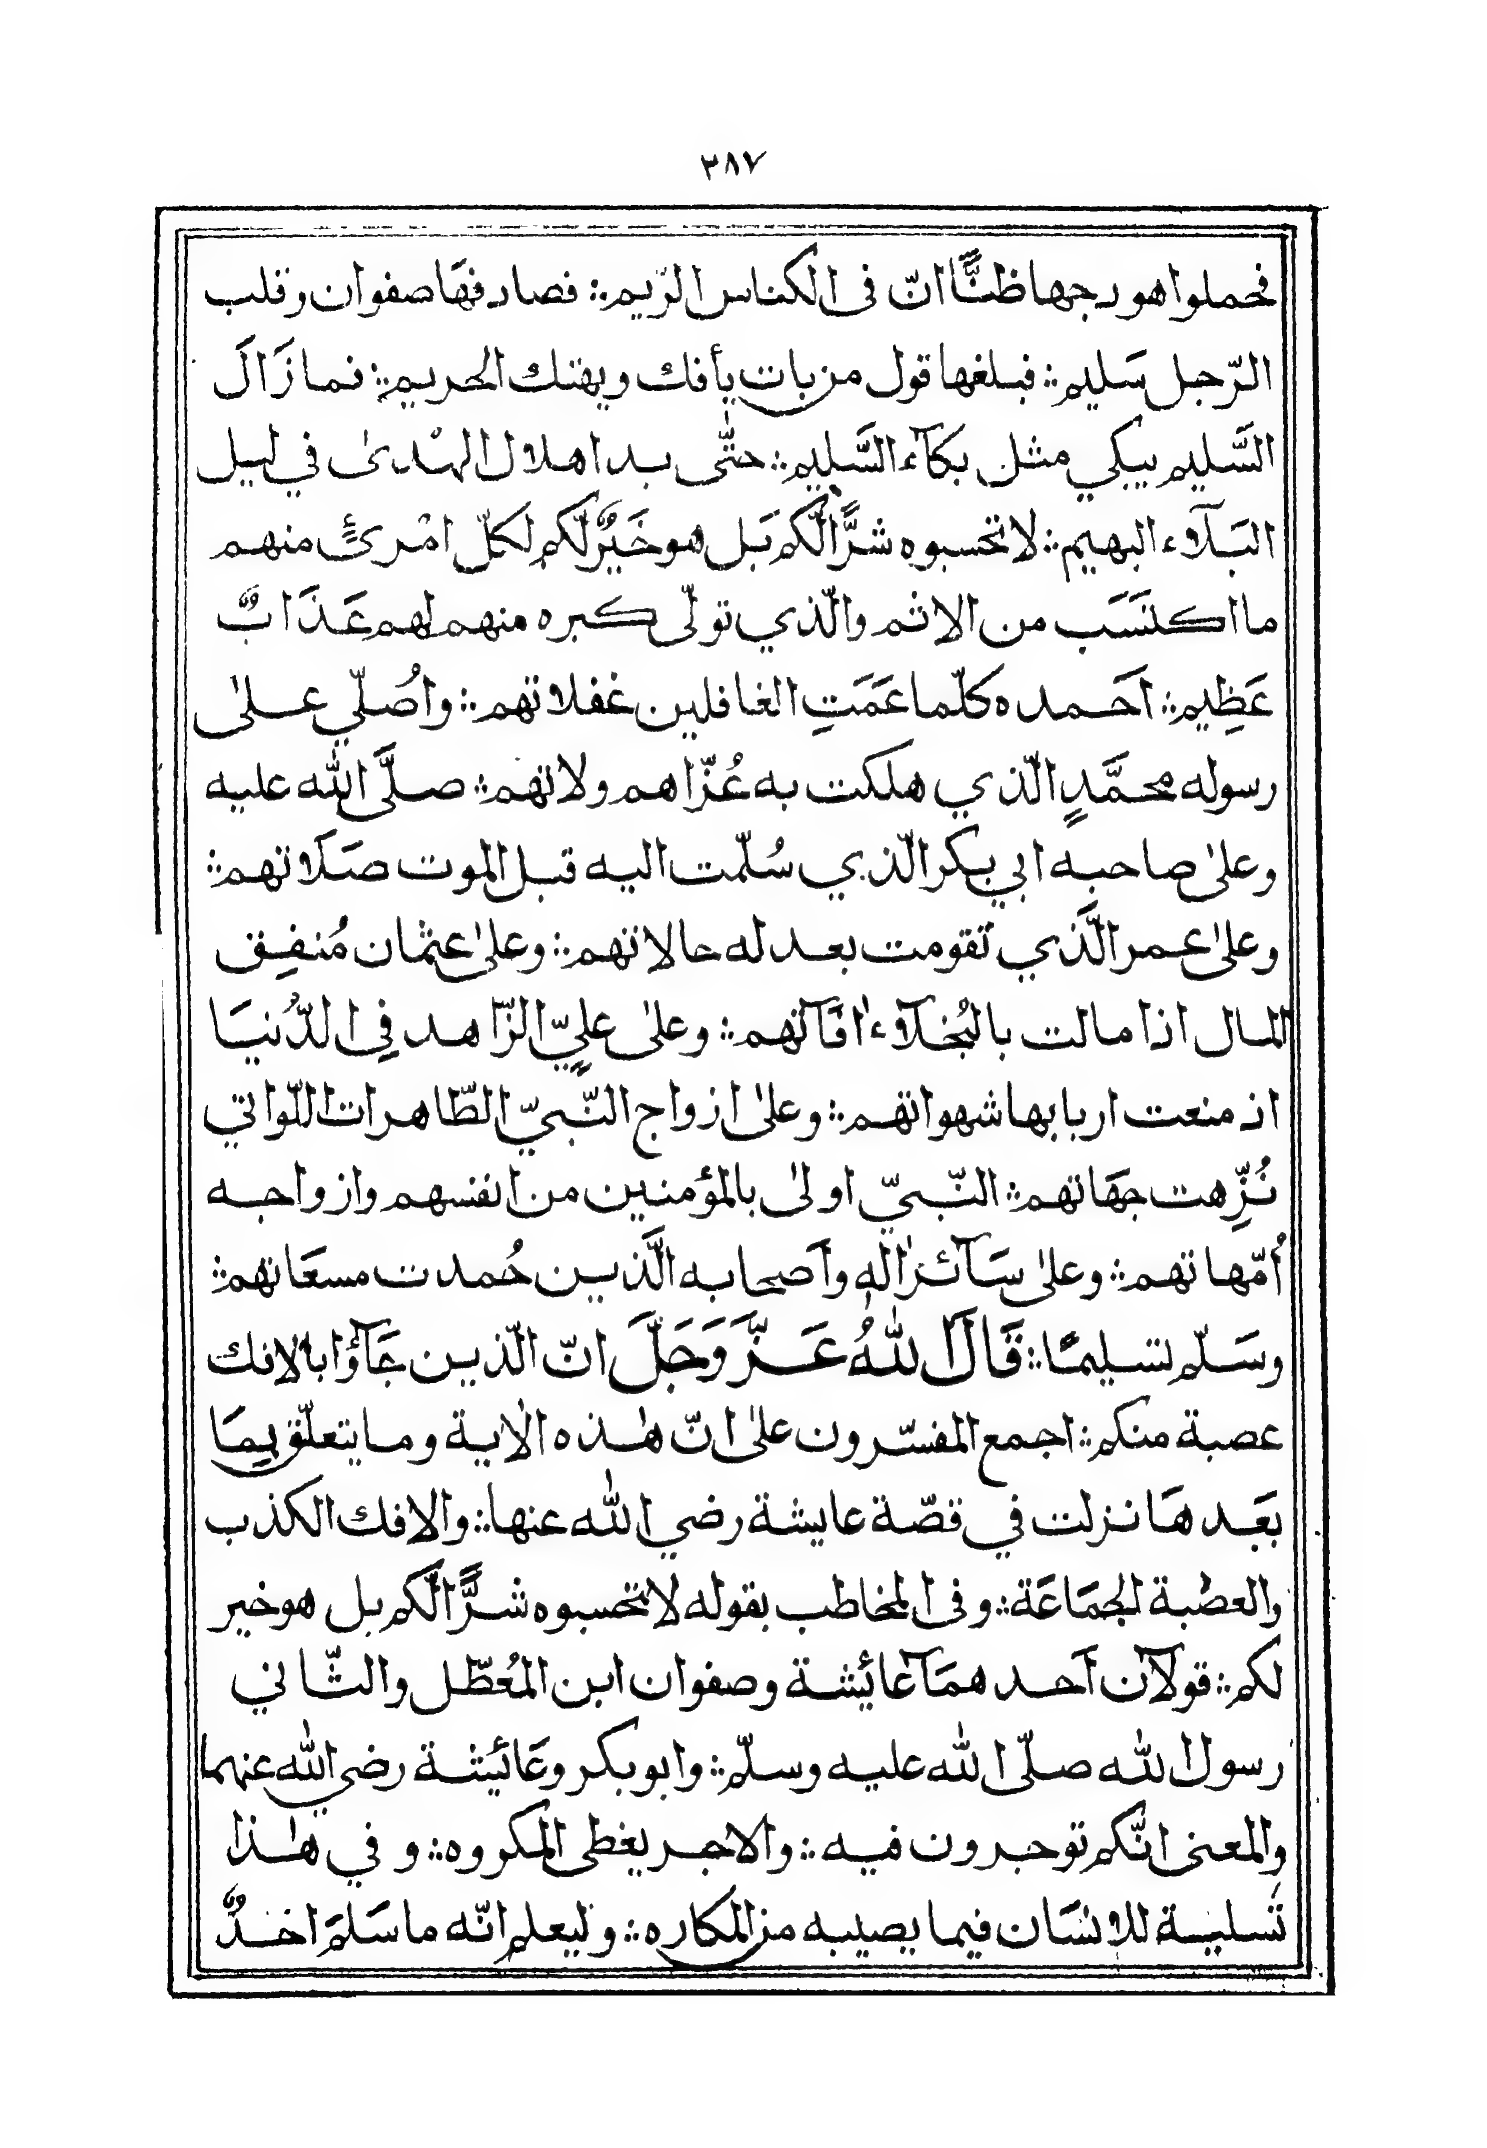 ٣٨٧
فحملوا هودجها ظنًّا انّ في الكناس الرّيم ؞ فصادفها صفوان وقلب
الرّجل سَليم ؞ فبلغها قول من بات يأفك ويهتك الحريم ؞ فما زَالَ
السَّليم يبكي مثل بكآء السَّليم ؞ حتّٰى بدا هلال الهُدىٰ في ليل
البَلآء البهيم ؞ لا تحسبوه شرًّا لّكم بَل هو خَيْرٌ لّكم لكلّ امْرئٍ منهم
ما اكتسَبَ من الاثم والّذي تولّى كبره منهم لهم عَذَابٌ
عَظِيم ؞ اَحَمده كلّما عَمَتِ الغافلين غفلاتهم ؞ واُصُلّي علىٰ
رسوله محمَّدٍ الّذي هلكت به عُزّاهم ولاتهم ؞ صلَّى اللّٰه عليه
وعلىٰ صاحبه ابي بكر الّذي سُلّمت اليه قبل الموت صَلَاتهم ؞
وعلىٰ عمر الَّذي تقومت بعدله حالاتهم ؞ وعلىٰ عثمان مُنفِق
المال اذا مالت بالبُخلآء اٰفَاتهم ؞ وعلىٰ عليٍّ الزّاهد فِي الدُّنيَا
اذ منعت اربابها شهواتهم ؞ وعلىٰ ازواج النّبيّ الطّاهرات اللّواتي
نُزِّهت جهَاتهم ؞ النّبيّ اولىٰ بالمؤمنين من انفسهم وازواجه
اُمّهاتهم ؞ وعلىٰ سَآئر اٰله وأصحابه الَّذين حُمدت مسعَاتهم ؞
وسَلّم تسليمًا ؞ قَالَ اللّٰهُ عَزَّ وَجَلَّ انّ الّذين جَآؤا بالافك
عصبة منكم ؞ اجمع المفسّرون علىٰ انّ هٰذه الاٰية وما يتعلّق بِمَا
بعَدهَا نزلت في قصّة عايشة رضي اللّٰه عنها ؞ والافك الكذب
والعصْبة الجمَاعَة ؞ وفي المخاطب بقوله لا تحسبوه شرًّا لّكم بل هو خير
لكم ؞ قولآن اَحدهمَا عائِشة وصفوان ابن المُعطّل والثّاني
رسول اللّٰه صلّى اللّٰه عليه وسلّم ؞ وابو بكر وعَائِشة رضي اللّٰه عنهما
والمعنى انّكم توجرون فيه ؞ والاجر يغطي المكروه ؞ وفي هٰذا
تَسلية للانسَان فيما يصيبه من المكاره ؞ وليعلم انّه ما سَلمَ احَدٌ